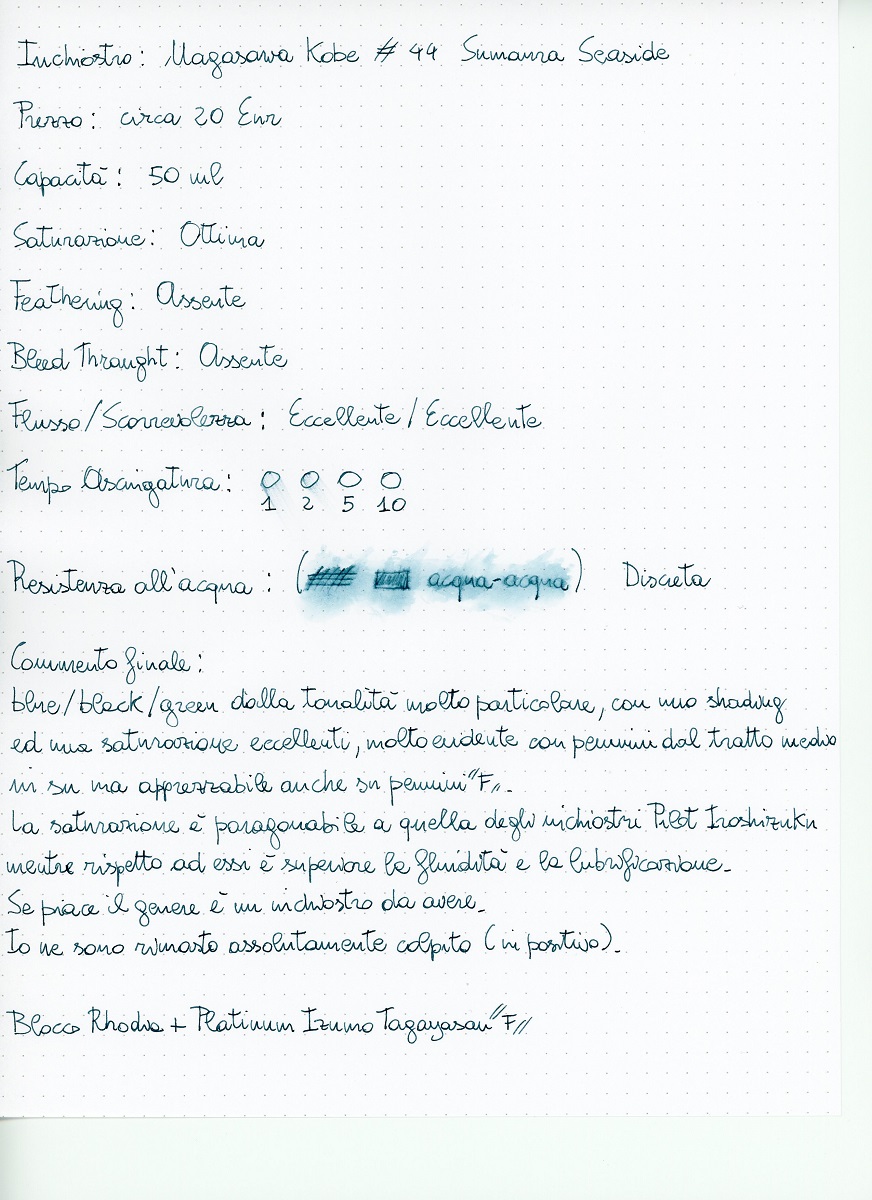 Inchiostro: Nagasawa Kobe # 44 Sumaura Seaside
Prezzo: circa 20 Eur
Capacità: 50 ml
Saturazione: Ottima
Feathering: Assente
Bleed Throught: Assente
Flusso/Scorrevolezza: Eccellente/Eccellente
Tempo Asciugatura: O O O O
1 2 5 10
Resistenza all'acqua: ( acqua-acqua) Discreta
Commento finale:
blue/black/green dalla tonalità molto particolare, con uno shading
ed una saturazione eccellenti, molto evidente con pennini dal tratto medio
in su ma apprezzabile anche su pennini "F".
La saturazione è paragonabile a quella degli inchiostri Pilot Iroshizuku
mentre rispetto ad essi è superiore la fluidità e la lubrificazione.
Se piace il genere è un inchiostro da avere.
Io ne sono rimasto assolutamente colpito (in positivo).
Blocco Rhodia + Platinum Izumo Tagayasan "F"